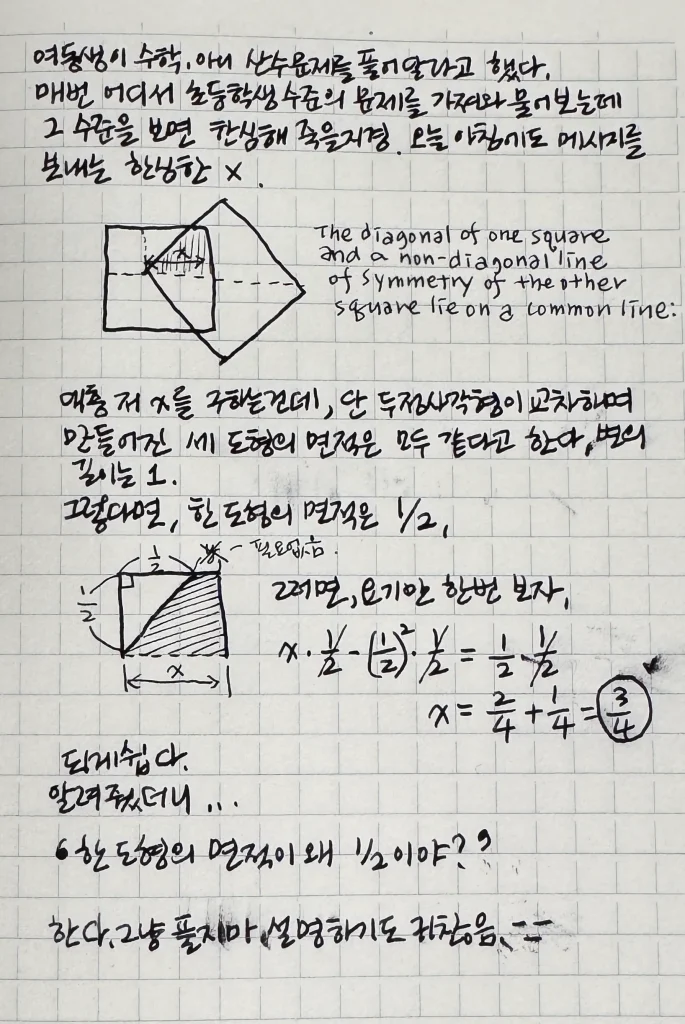 여동생이 수학, 아니 산수문제를 풀어달라고 했다.
매번 어디서 초등학생수준의 문제를 가져와 물어보는데
그 수준을 보면 한심해 죽을지경. 오늘 아침에도 메시지를
보내는 한심한 X.
x
The diagonal of one square
and a non-diagonal line
of symmetry of the other
square lie on a common line:
저 x를 구하는건데, 단 두정사각형이 교차하며
만들어진 세 도형의 면적은 모두 같다고 한다, 변의
길이는 1.
그렇다면, 한 도형의 면적은 1/2,
1/2 y - 필요없음.
1/2
x
그러면, 요기만 한번 보자,
x · 1/2 - (1/2)² · 1/2 = 1/2 · 1/2
x = 2/4 + 1/4 = 3/4
되게쉽다.
알려줬더니 ...
6 한 도형의 면적이 왜 1/2이야? 9
한다. 그냥 풀지마, 설명하기도 귀찮음, ㅡㅡ